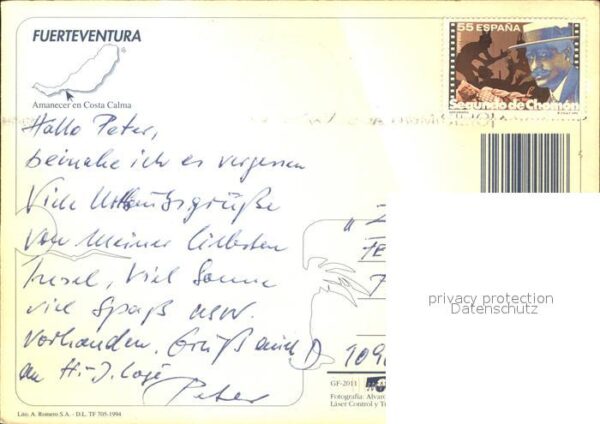 FUERTEVENTURA
Amanecer en Costa Calma
55 ESPAÑA
Segundo de Chomón
Hallo Peter,
beinahe ich es vergessen
Viele Urlaubsgrüße
von meiner liebsten
Insel, viel Sonne
viel Spaß usw.
vorhanden. Grüß auch
an H.-J.
Peter
D 109
privacy protection
Datenschutz
GF-2011
Fotografía: Alvaro
Láser Control y T
Lito. A. Romero S.A. - D.L. TF 705-1994